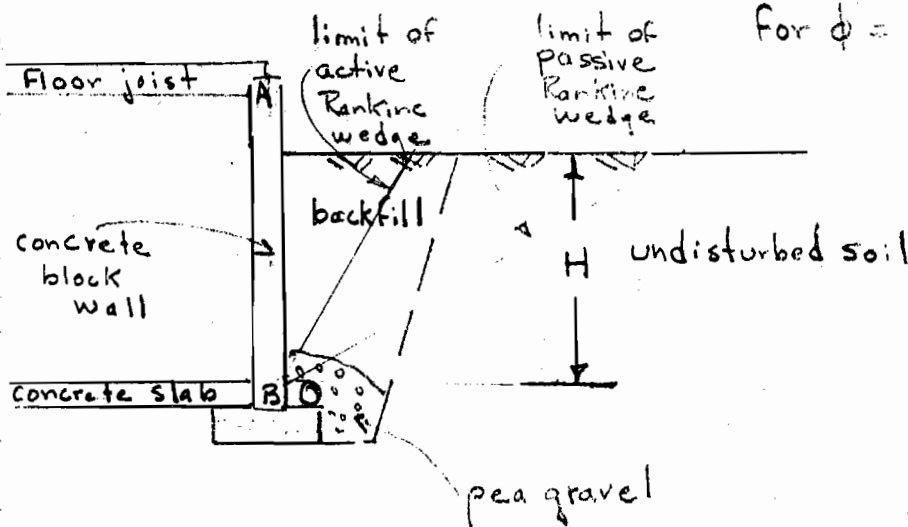 for ϕ =
limit of
active
Rankine
wedge
limit of
passive
Rankine
wedge
Floor joist
A
backfill
concrete
block
wall
H
undisturbed soil
concrete slab
B
pea gravel